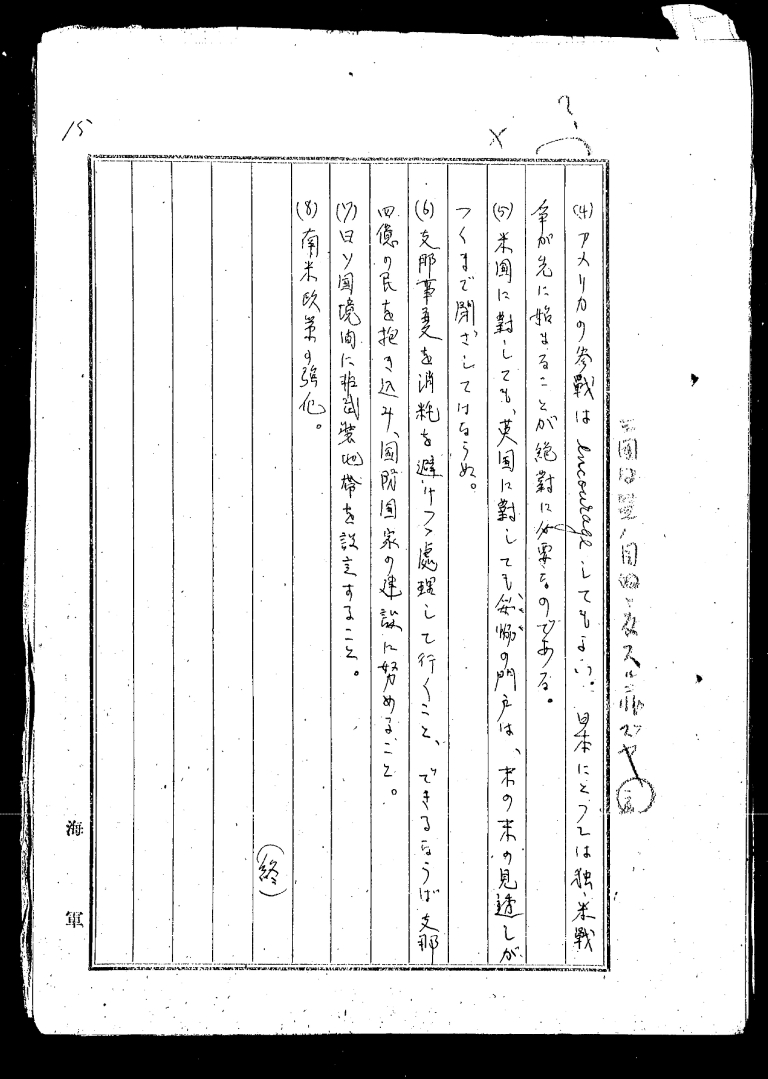 15
?
×
(4)アメリカの参戰は encourage してもよい。日本にとつては独、米戰
争が先に始まることが絶對に必要なのである。
(5)米国に對しても、英国に對しても、妥協の門戸は、末の末の見透しが
つくまで閉ざしてはならぬ。
(6)支那事変を消耗を避けつつ處理して行くこと、できるならば支那
四億の民を抱き込み、国防国家の建設に努めること。
(7)日ソ国境間に非武装地帯を設定すること。
(8)南米政策の強化。
(終)
海軍